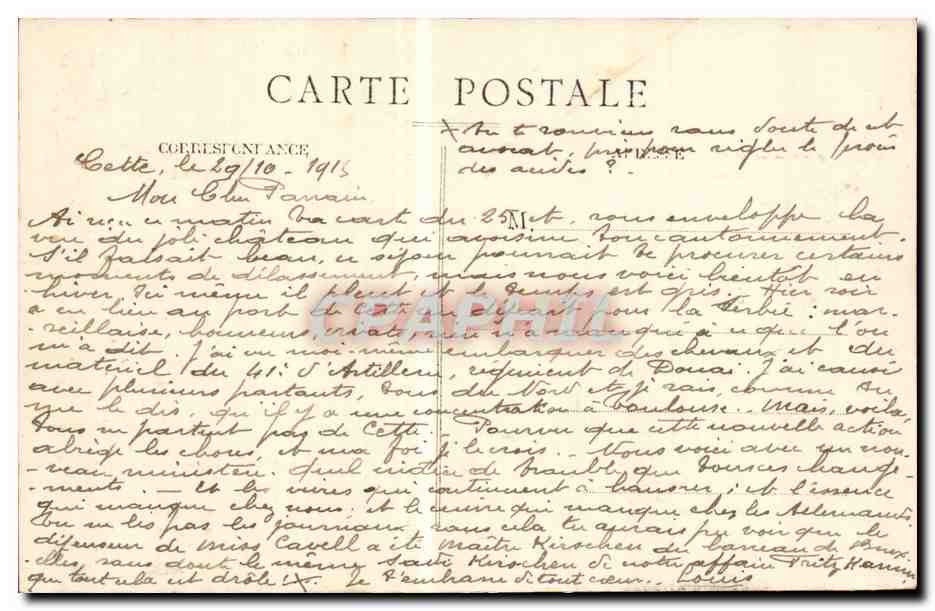 CARTE POSTALE
CORRESPONDANCE
Cette, le 29/10 - 1915
Mon Cher Parrain
Ai reçu ce matin ta carte du 25 M ct, sous enveloppe la
vue du joli château qui avoisine ton cantonnement.
S'il faisait beau, ce séjour pourrait te procurer certains
moments de délassement, mais nous voici bientôt en
hiver, Ici même il pleut et le temps est gris. Hier soir
a eu lieu au port de Cette un départ pour la Serbie : mar-
seillaise, honneurs, vivats, rien n'a manqué à ce que l'on
m'a dit. J'ai vu moi-même embarquer des chevaux et du
matériel du 41e d'Artillerie, régiment de Douai. J'ai causé
avec plusieurs partants, tous du Nord et je sais, comme tu
me le dis, qu'il y a une concentration à Toulouse. Mais, voilà
tous ne partent pas de Cette. Pourvu que cette nouvelle action
abrège les choses, et ma foi je le crois. - Nous voici avec un nou-
-veau ministère. Quel indice de trouble que tous ces change-
-ments. - Et les vivres qui continuent à hausser ; et l'essence
qui manque chez nous et le cuivre qui manque chez les Allemands
Tu ne lis pas les journaux sans cela tu aurais pu voir que le
défenseur de Miss Cavell a été Maître Kirschen du barreau de Brux-
-elles, sans doute le même Sadi Kirschen de notre affaire Fritz
que tout cela est drôle ! X. Je t'embrasse de tout cœur. Louis
X Tu te souviens sans doute de cet
avocat, pris pour régler le procès
des ?
CPAPHIL